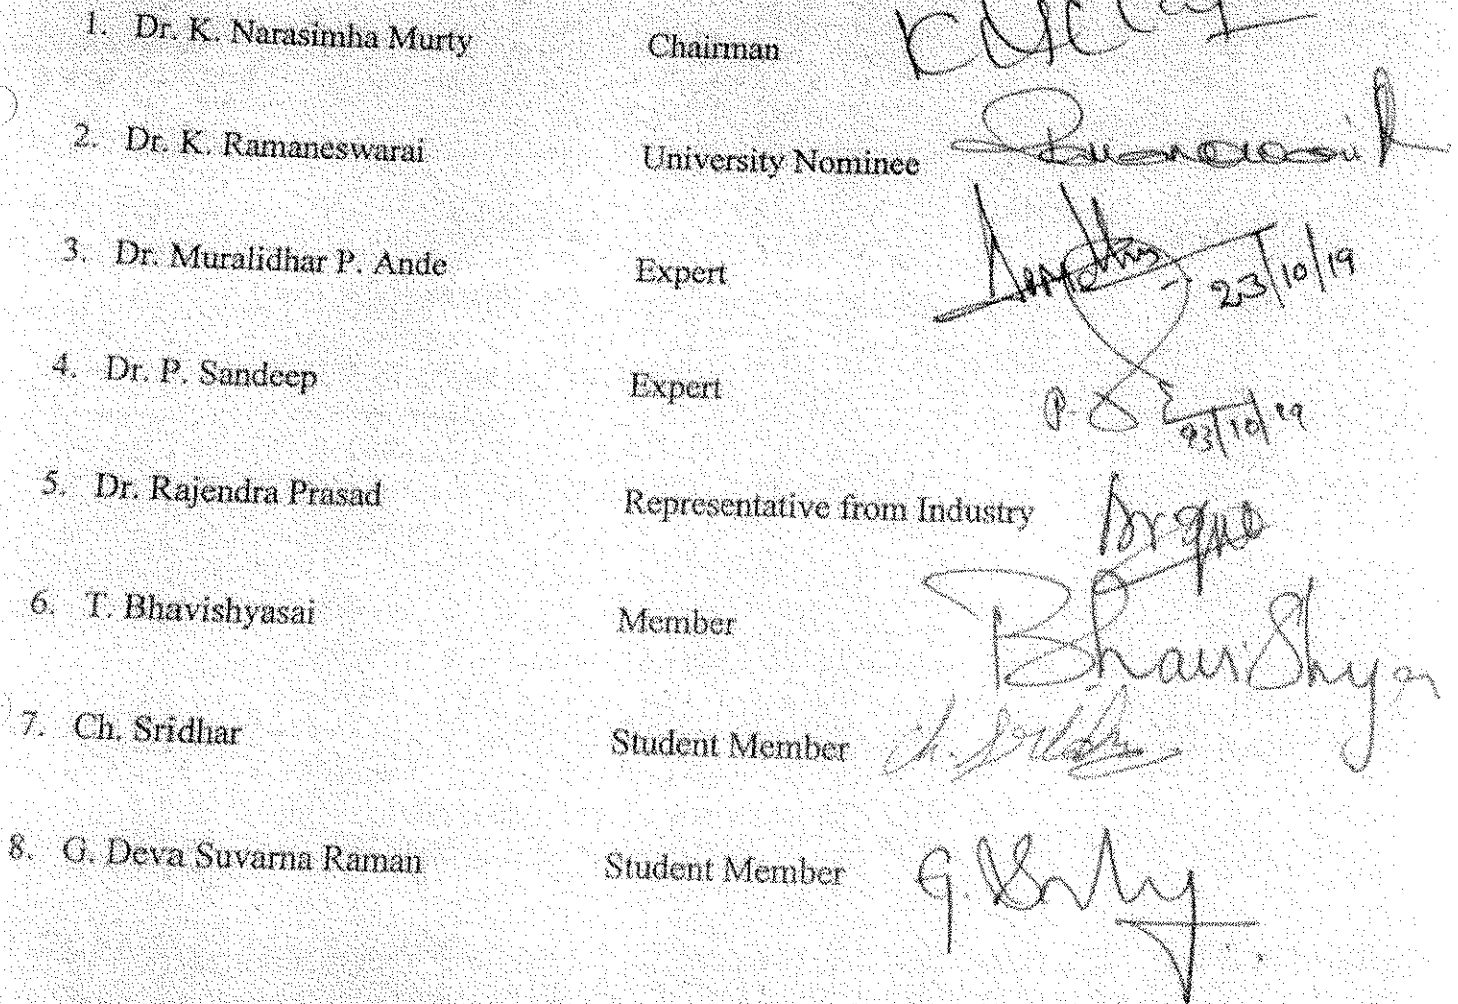 1. Dr. K. Narasimha Murty Chairman
2. Dr. K. Ramaneswarai University Nominee
3. Dr. Muralidhar P. Ande Expert 23/10/19
4. Dr. P. Sandeep Expert P. 23/10/19
5. Dr. Rajendra Prasad Representative from Industry
6. T. Bhavishyasai Member Bhavishya
7. Ch. Sridhar Student Member Ch. Sridhar
8. G. Deva Suvarna Raman Student Member G.